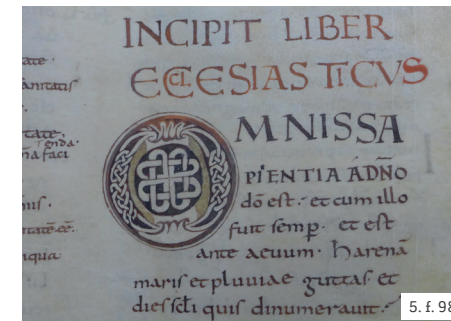 INCIPIT LIBER
ECCLESIASTICVS
OMNISSA
PIENTIA A DÑO
dō est · et cum illo
fuit semp̱ · et est
ante aeuum · harenā
maris et pluviae guttas et
dies scłi quis dinumerauit ·
5. f. 98